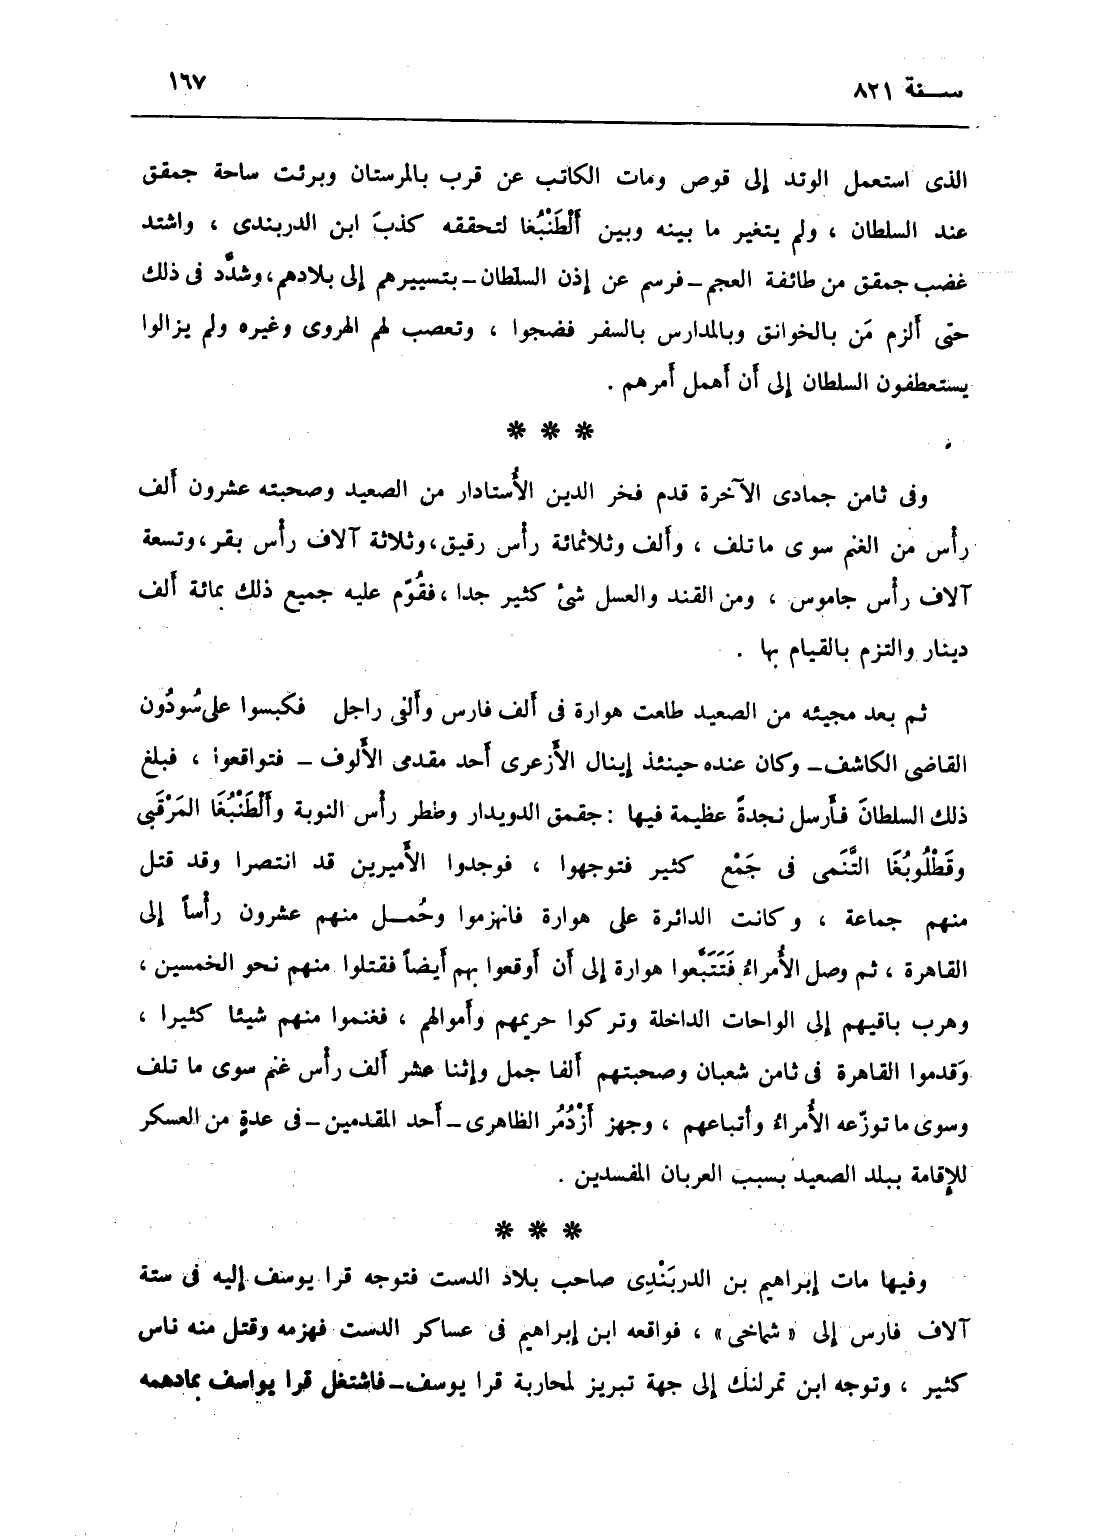 سنة ٨٢١
١٦٧
الذى استعمل الوتد إلى قوص ومات الكاتب عن قرب بالمرستان وبرئت ساحة جمقق
عند السلطان ، ولم يتغير ما بينه وبين أَلْطَنْبُغا لتحققه كذبَ ابن الدربندى ، واشتد
غضب جمقق من طائفة العجم ــ فرسم عن إذن السلطان ــ بتسييرهم إلى بلادهم، وشدَّد فى ذلك
حتى ألزم مَن بالخوانق وبالمدارس بالسفر فضجوا ، وتعصب لهم الهروى وغيره ولم يزالوا
يستعطفون السلطان إلى أن أهمل أمرهم .
* * *
وفى ثامن جمادى الآخرة قدم فخر الدين الأُستادار من الصعيد وصحبته عشرون ألف
رأس من الغنم سوى ما تلف ، وألف وثلاثمائة رأس رقيق، وثلاثة آلاف رأس بقر، وتسعة
آلاف رأس جاموس ، ومن القند والعسل شئ كثير جدا ، فقُوّم عليه جميع ذلك بمائة ألف
دينار والتزم بالقيام بها .
ثم بعد مجيئه من الصعيد طلعت هوارة فى ألف فارس وألفى راجل فكبسوا على سُودُون
القاضى الكاشف ــ وكان عنده حينئذ إينال الأزعرى أحد مقدمى الألوف ــ فتواقعوا ، فبلغ
ذلك السلطانَ فأرسل نجدةً عظيمة فيها : جقمق الدويدار وططر رأس النوبة وأَلْطَنْبُغَا المَرْقَبى
وقَطْلُوبُغَا التَّنَمى فى جَمْع كثير فتوجهوا ، فوجدوا الأميرين قد انتصرا وقد قتل
منهم جماعة ، وكانت الدائرة على هوارة فانهزموا وحُمل منهم عشرون رأساً إلى
القاهرة ، ثم وصل الأُمراءُ فَتَتَبَّعوا هوارة إلى أن أوقعوا بهم أيضاً فقتلوا منهم نحو الخمسين ،
وهرب باقيهم إلى الواحات الداخلة وتركوا حريمهم وأموالهم ، فغنموا منهم شيئا كثيرا ،
وَقدموا القاهرة فى ثامن شعبان وصحبتهم ألفا جمل وإثنا عشر ألف رأس غنم سوى ما تلف
وسوى ما توزّعه الأُمراءُ وأتباعهم ، وجهز أزْدُمُر الظاهرى ــ أحد المقدمين ــ فى عدةٍ من العسكر
للإقامة ببلد الصعيد بسبب العربان المفسدين .
* * *
وفيها مات إبراهيم بن الدربَنْدِى صاحب بلاد الدست فتوجه قرا يوسف إليه فى ستة
آلاف فارس إلى « شماخى» ، فواقعه ابن إبراهيم فى عساكر الدست فهزمه وقتل منه ناس
كثير ، وتوجه ابن تمرلنك إلى جهة تبريز لمحاربة قرا يوسف ــ فاشتغل قرا يواسف بمادهمه